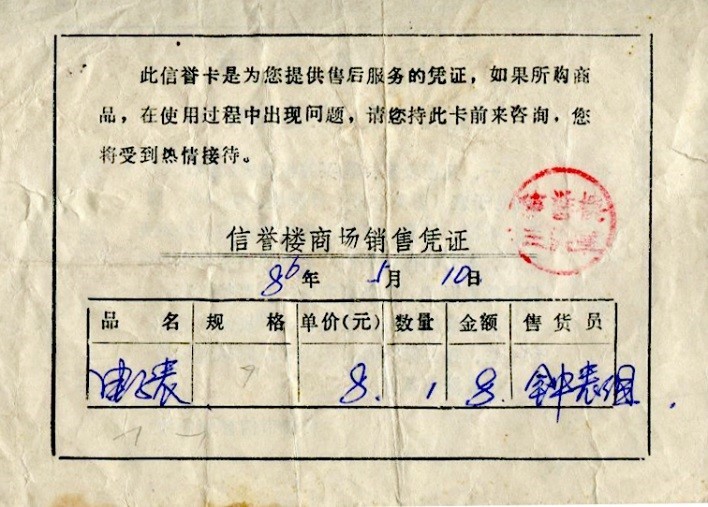 此信誉卡是为您提供售后服务的凭证，如果所购商
品，在使用过程中出现问题，请您持此卡前来咨询，您
将受到热情接待。
信誉楼
信誉楼商场销售凭证
86年 5月 10日
品 名 规 格 单价(元) 数量 金额 售货员
电子表 8. 1 8. 钟表组